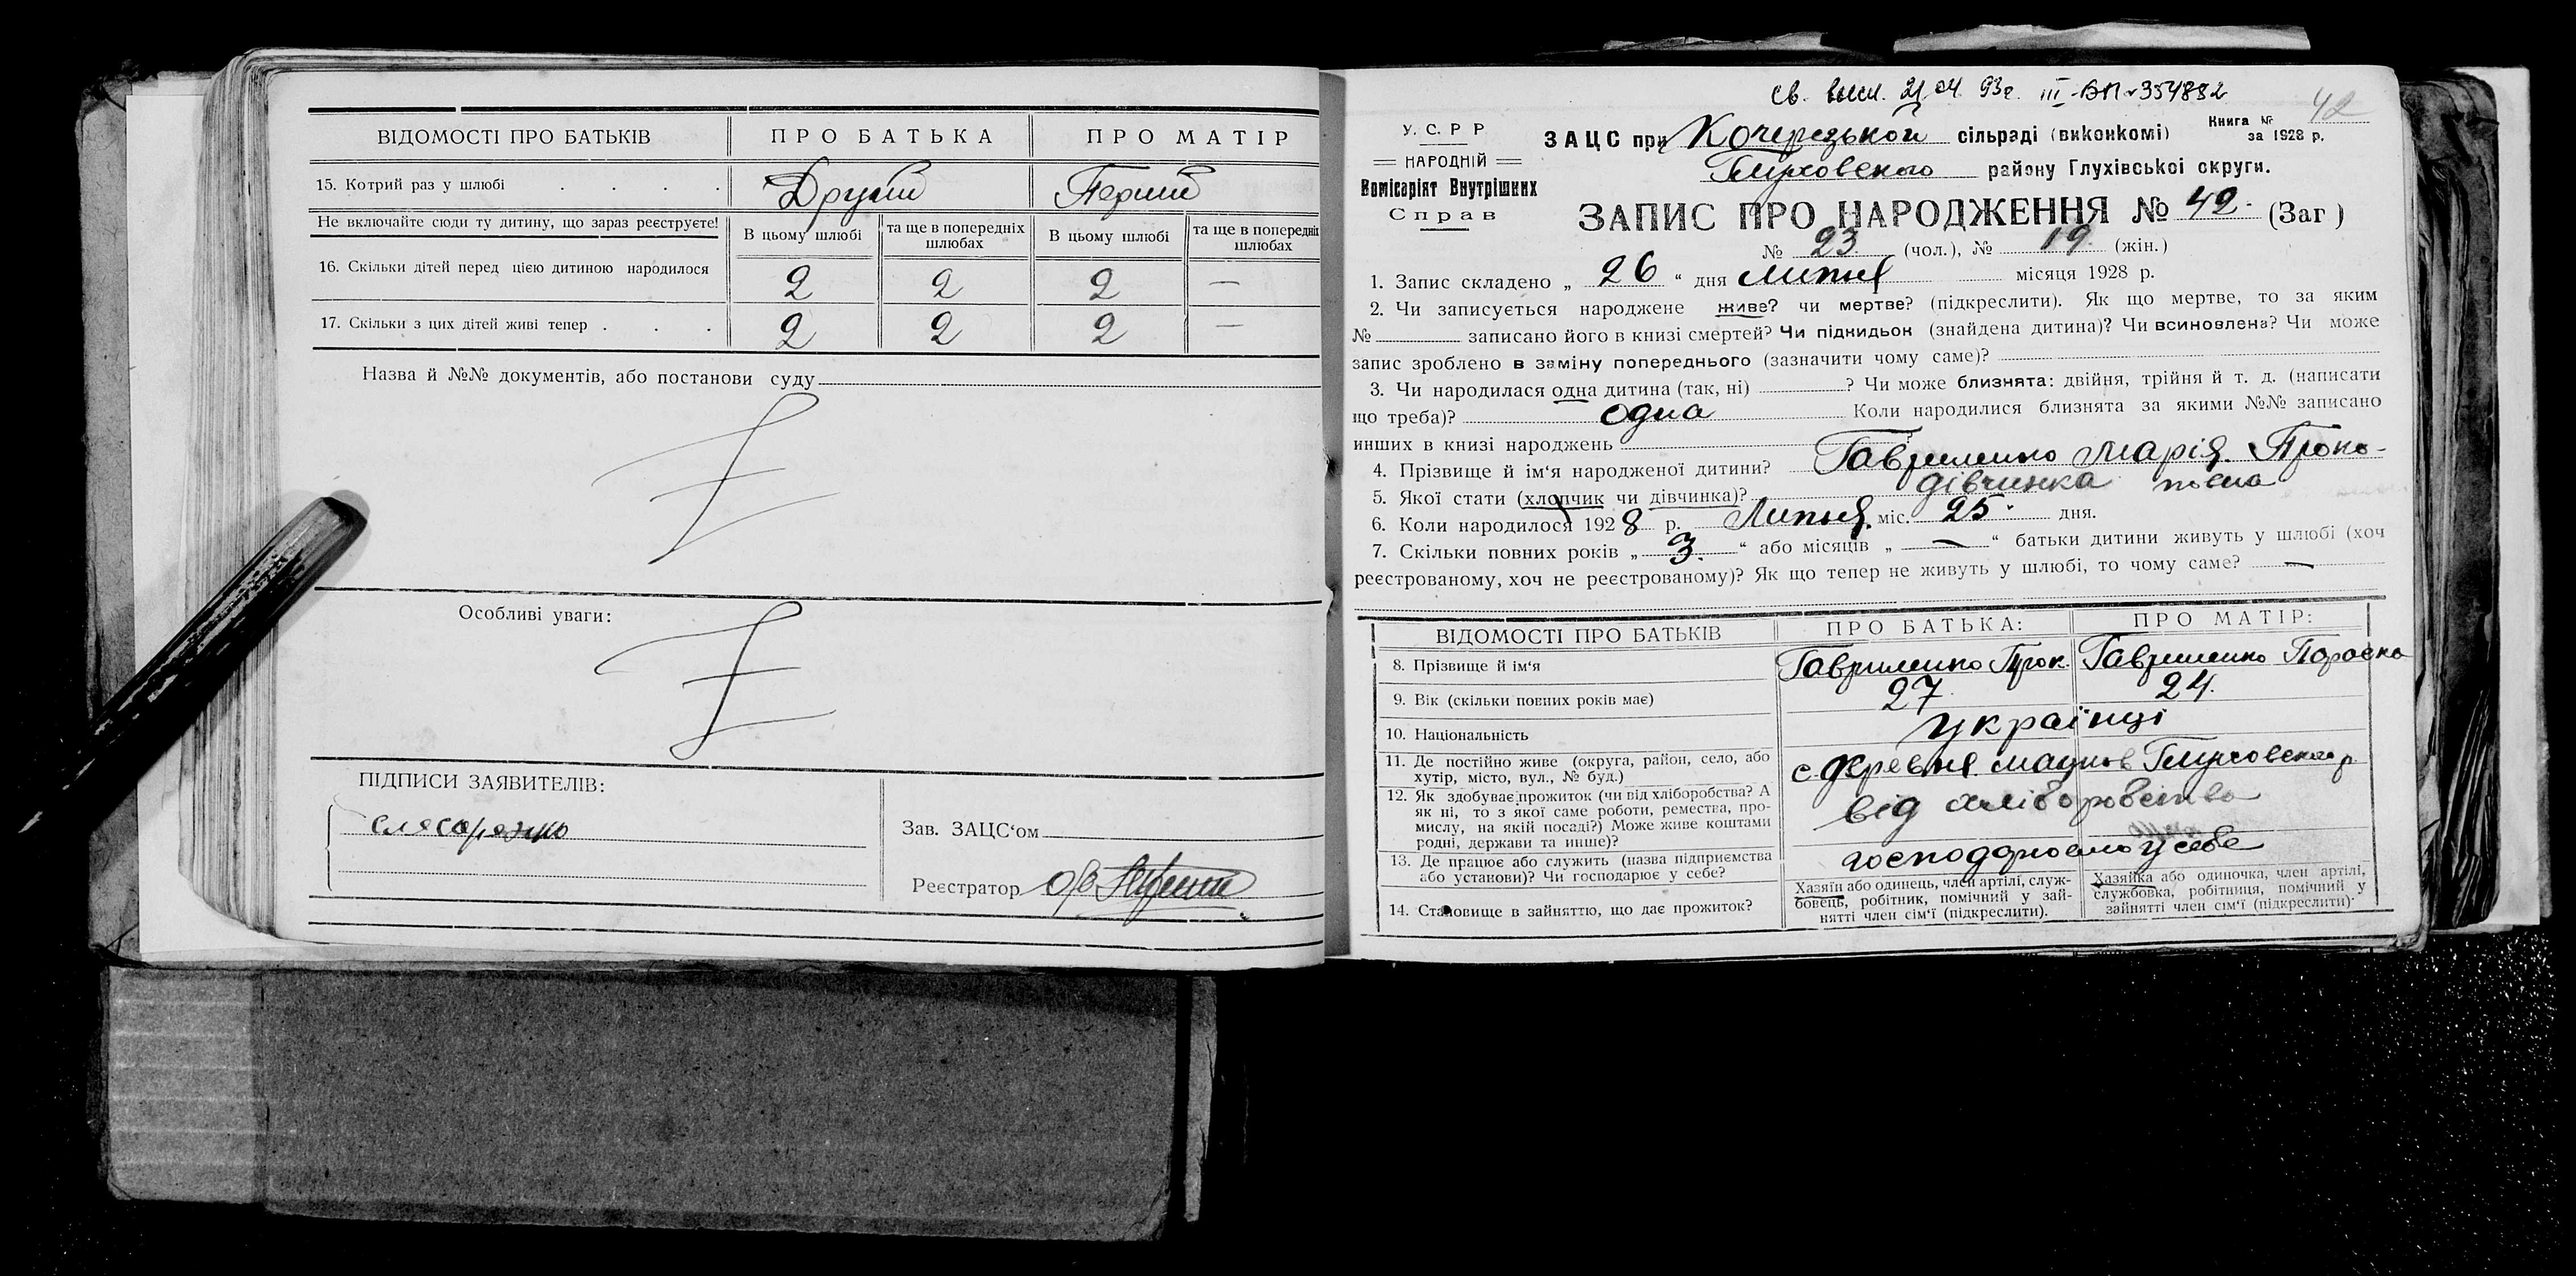 ВІДОМОСТІ ПРО БАТЬКІВ ПРО БАТЬКА ПРО МАТІР
15. Котрий раз у шлюбі . . . . Другий Перший
Не включайте сюди ту дитину, що зараз реєструєте! В цьому шлюбі та ще в попередніх шлюбах В цьому шлюбі та ще в попередніх шлюбах
16. Скільки дітей перед цією дитиною народилося 2 2 2 —
17. Скільки з цих дітей живі тепер . . . 2 2 2 —
Назва й №№ документів, або постанови суду
Особливі уваги:
ПІДПИСИ ЗАЯВИТЕЛІВ:
слясаренко
Зав. ЗАЦС'ом
Реєстратор
Св. высл. 21.04.93г. III-ВП №354882
42
У. С. Р Р
НАРОДНІЙ
Комісаріят Внутрішних
Справ
ЗАЦС при сільраді (виконкомі) Книга №
за 1928 р.
Глухо́вського району Глухівської округи.
ЗАПИС ПРО НАРОДЖЕННЯ № 42. (Заг )
№ 23 (чол.), № 19. (жін.)
1. Запис складено „ 26 “ дня липня місяця 1928 р.
2. Чи записується народжене живе? чи мертве? (підкреслити). Як що мертве, то за яким
№ записано його в книзі смертей? Чи підкидьок (знайдена дитина)? Чи всиновлена? Чи може
запис зроблено в заміну попереднього (зазначити чому саме)?
3. Чи народилася одна дитина (так, ні) ? Чи може близнята: двійня, трійня й т. д. (написати
що треба)? одна Коли народилися близнята за якими №№ записано
инших в книзі народжень
4. Прізвище й ім'я народженої дитини? Гавриленко Марія Проко-
5. Якої стати (хлопчик чи дівчинка)? дівчинка повна
6. Коли народилося 1928 р. Липня міс. 25. дня.
7. Скільки повних років „ 3. “ або місяців „ — “ батьки дитини живуть у шлюбі (хоч
реєстрованому, хоч не реєстрованому)? Як що тепер не живуть у шлюбі, то чому саме? —
ВІДОМОСТІ ПРО БАТЬКІВ ПРО БАТЬКА: ПРО МАТІР:
8. Прізвище й ім'я Гавриленко Прок. Гавриленко Параска
9. Вік (скільки повних років має) 27. 24.
10. Національність українці
11. Де постійно живе (округа, район, село, або
хутір, місто, вул., № буд.)
12. Як здобуває прожиток (чи від хліборобства? А
як ні, то з якої саме роботи, ремества, про-
мислу, на якій посаді?) Може живе коштами
родні, держави та инше)?
від хліборобства
13. Де працює або служить (назва підприємства
або установи)? Чи господарює у себе?
у себе
14. Становище в зайняттю, що дає прожиток?
Хазяїн або одинець, член артілі, служ-
бовець, робітник, помічний у зай-
нятті член сім'ї (підкреслити).
Хазяйка або одиночка, член артілі,
службовка, робітниця, помічний у
зайнятті член сім'ї (підкреслити).